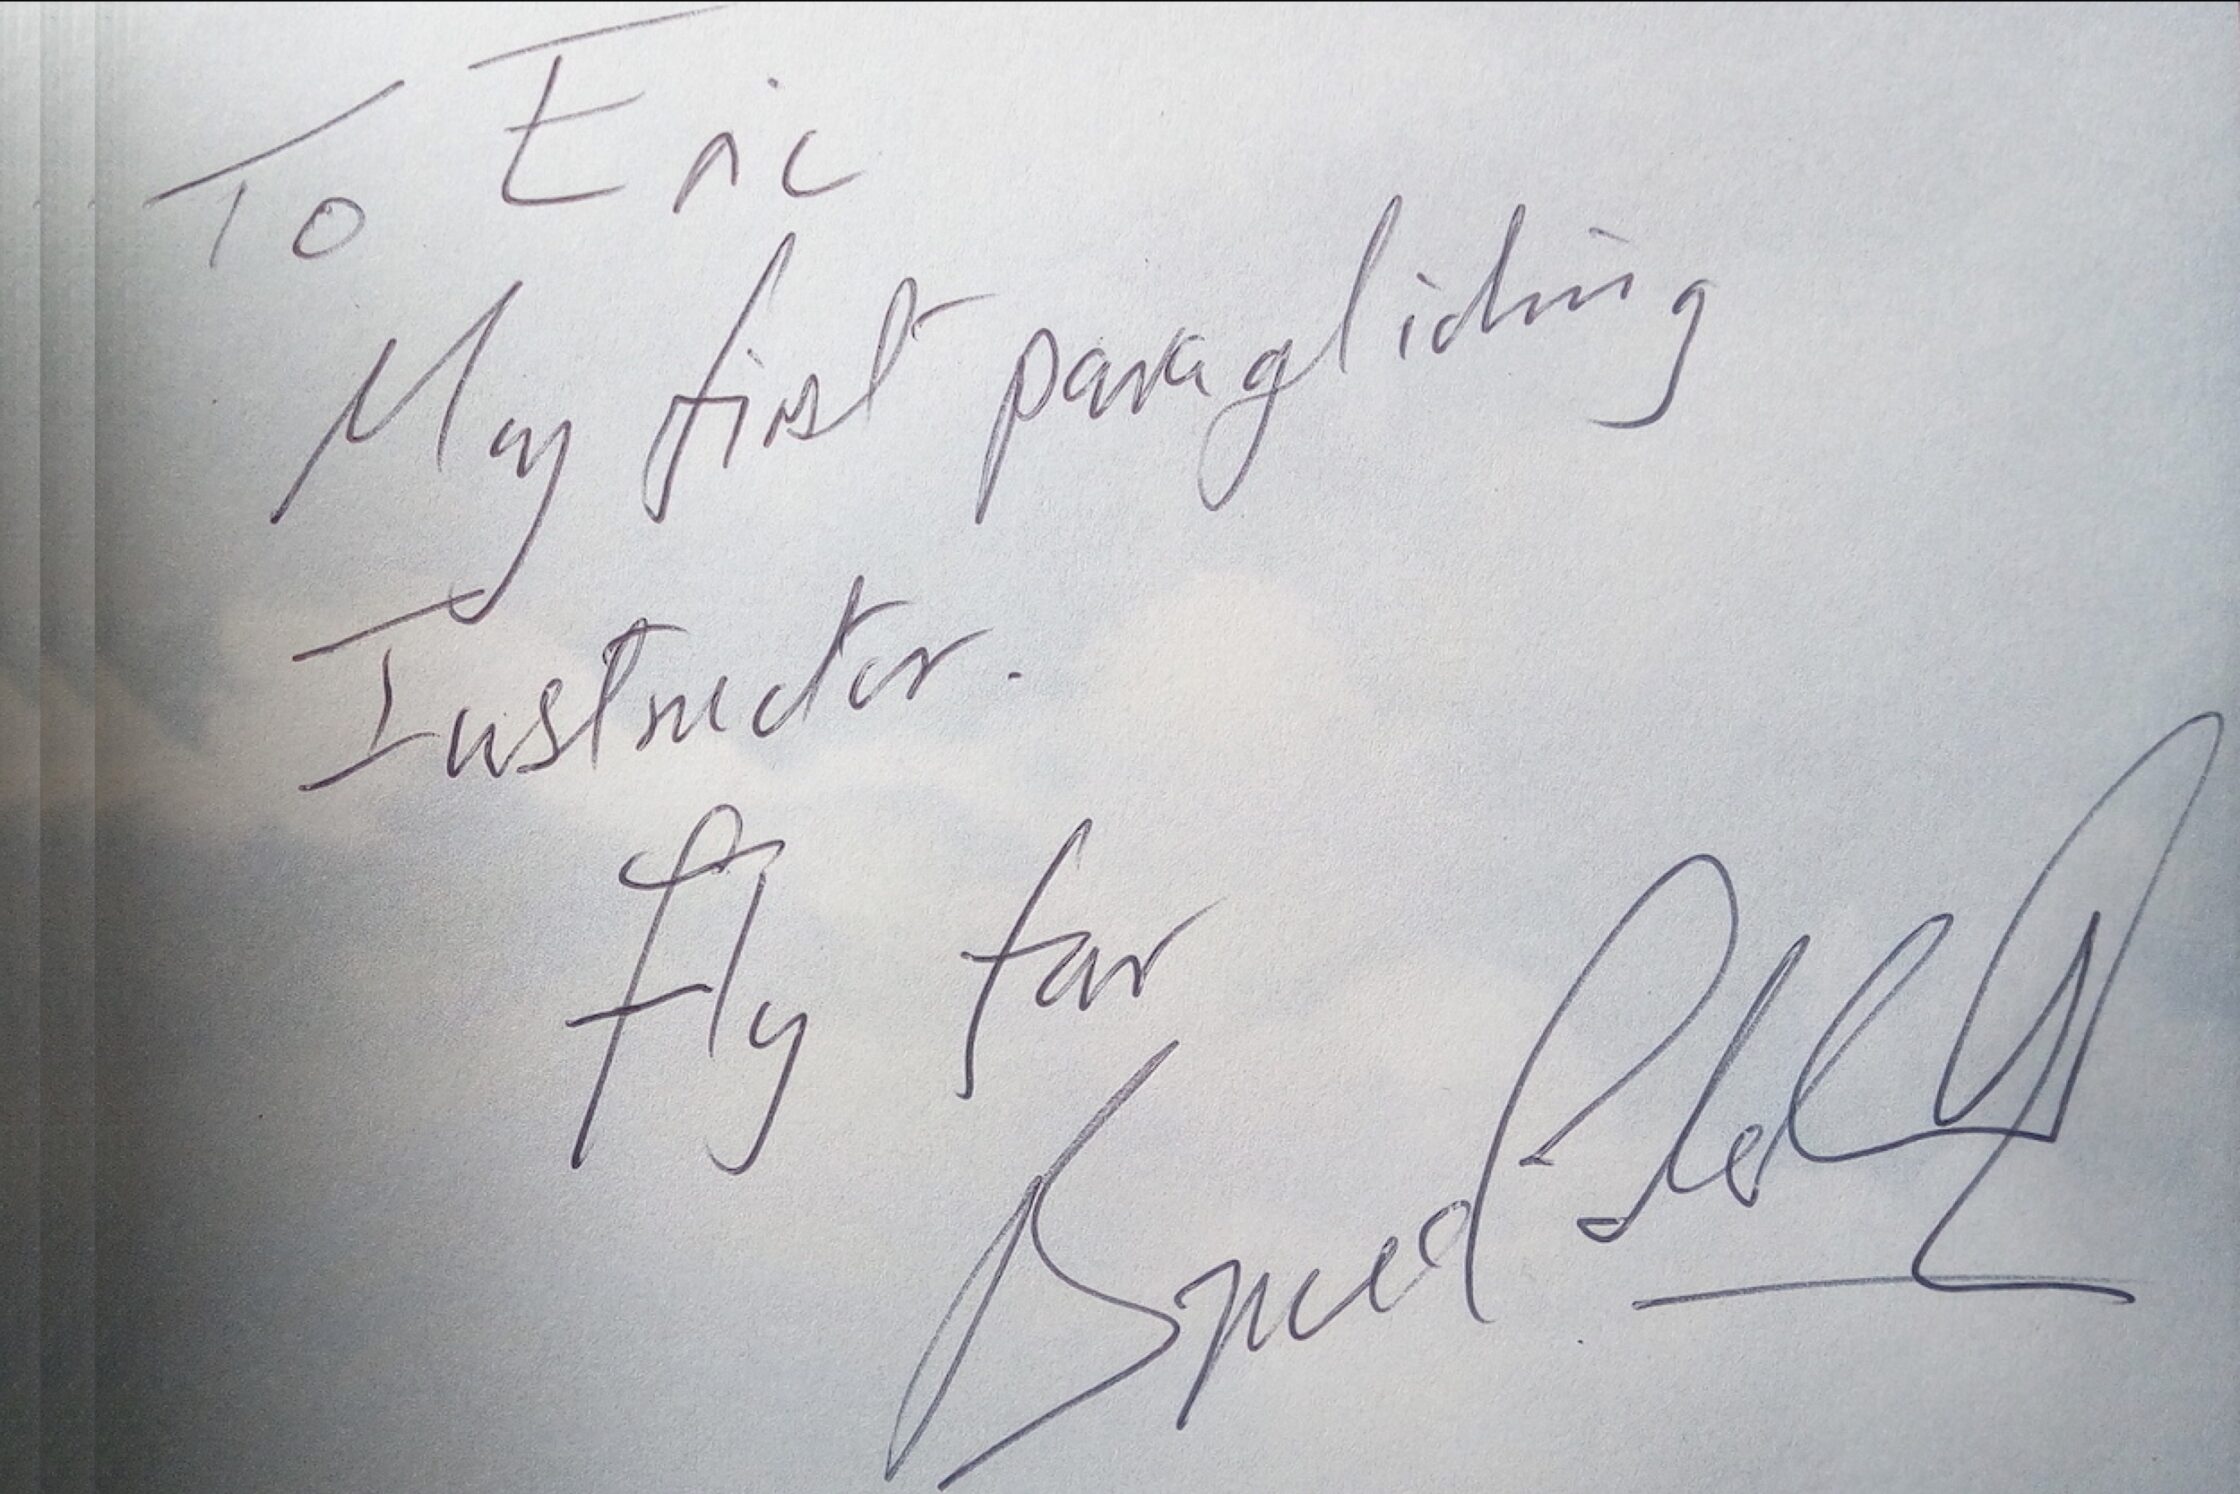 To Eric
My first paragliding
Instructor.
Fly far